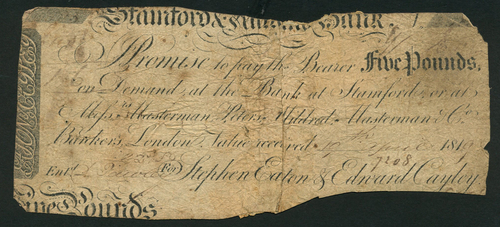 Stamford & Bank
I Promise to pay the Bearer Five Pounds,
on Demand, at the Bank at Stamford, or at
Mess.rs Masterman, Peters, Mildred, Masterman & Co.
Bankers, London. Value received 181
7208
Entd. For Stephen Eaton & Edward Cayley.
Five Pounds